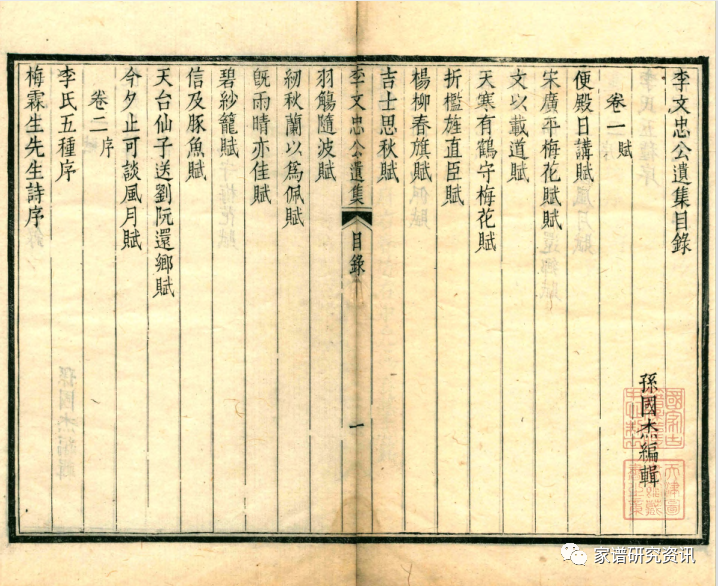 李文忠公遺集目錄
卷一 賦
孫國杰編輯
便殿日講賦
宋廣平梅花賦賦
文以載道賦
天寒有鶴守梅花賦
折檻旌直臣賦
楊柳春旗賦
吉士思秋賦
李文忠公遺集 目錄 一
羽觴隨波賦
紉秋蘭以爲佩賦
旣雨晴亦佳賦
碧紗籠賦
信及豚魚賦
天台仙子送劉阮還鄉賦
今夕止可談風月賦
卷二 序
李氏五種序
梅霖生先生詩序
家谱研究资讯